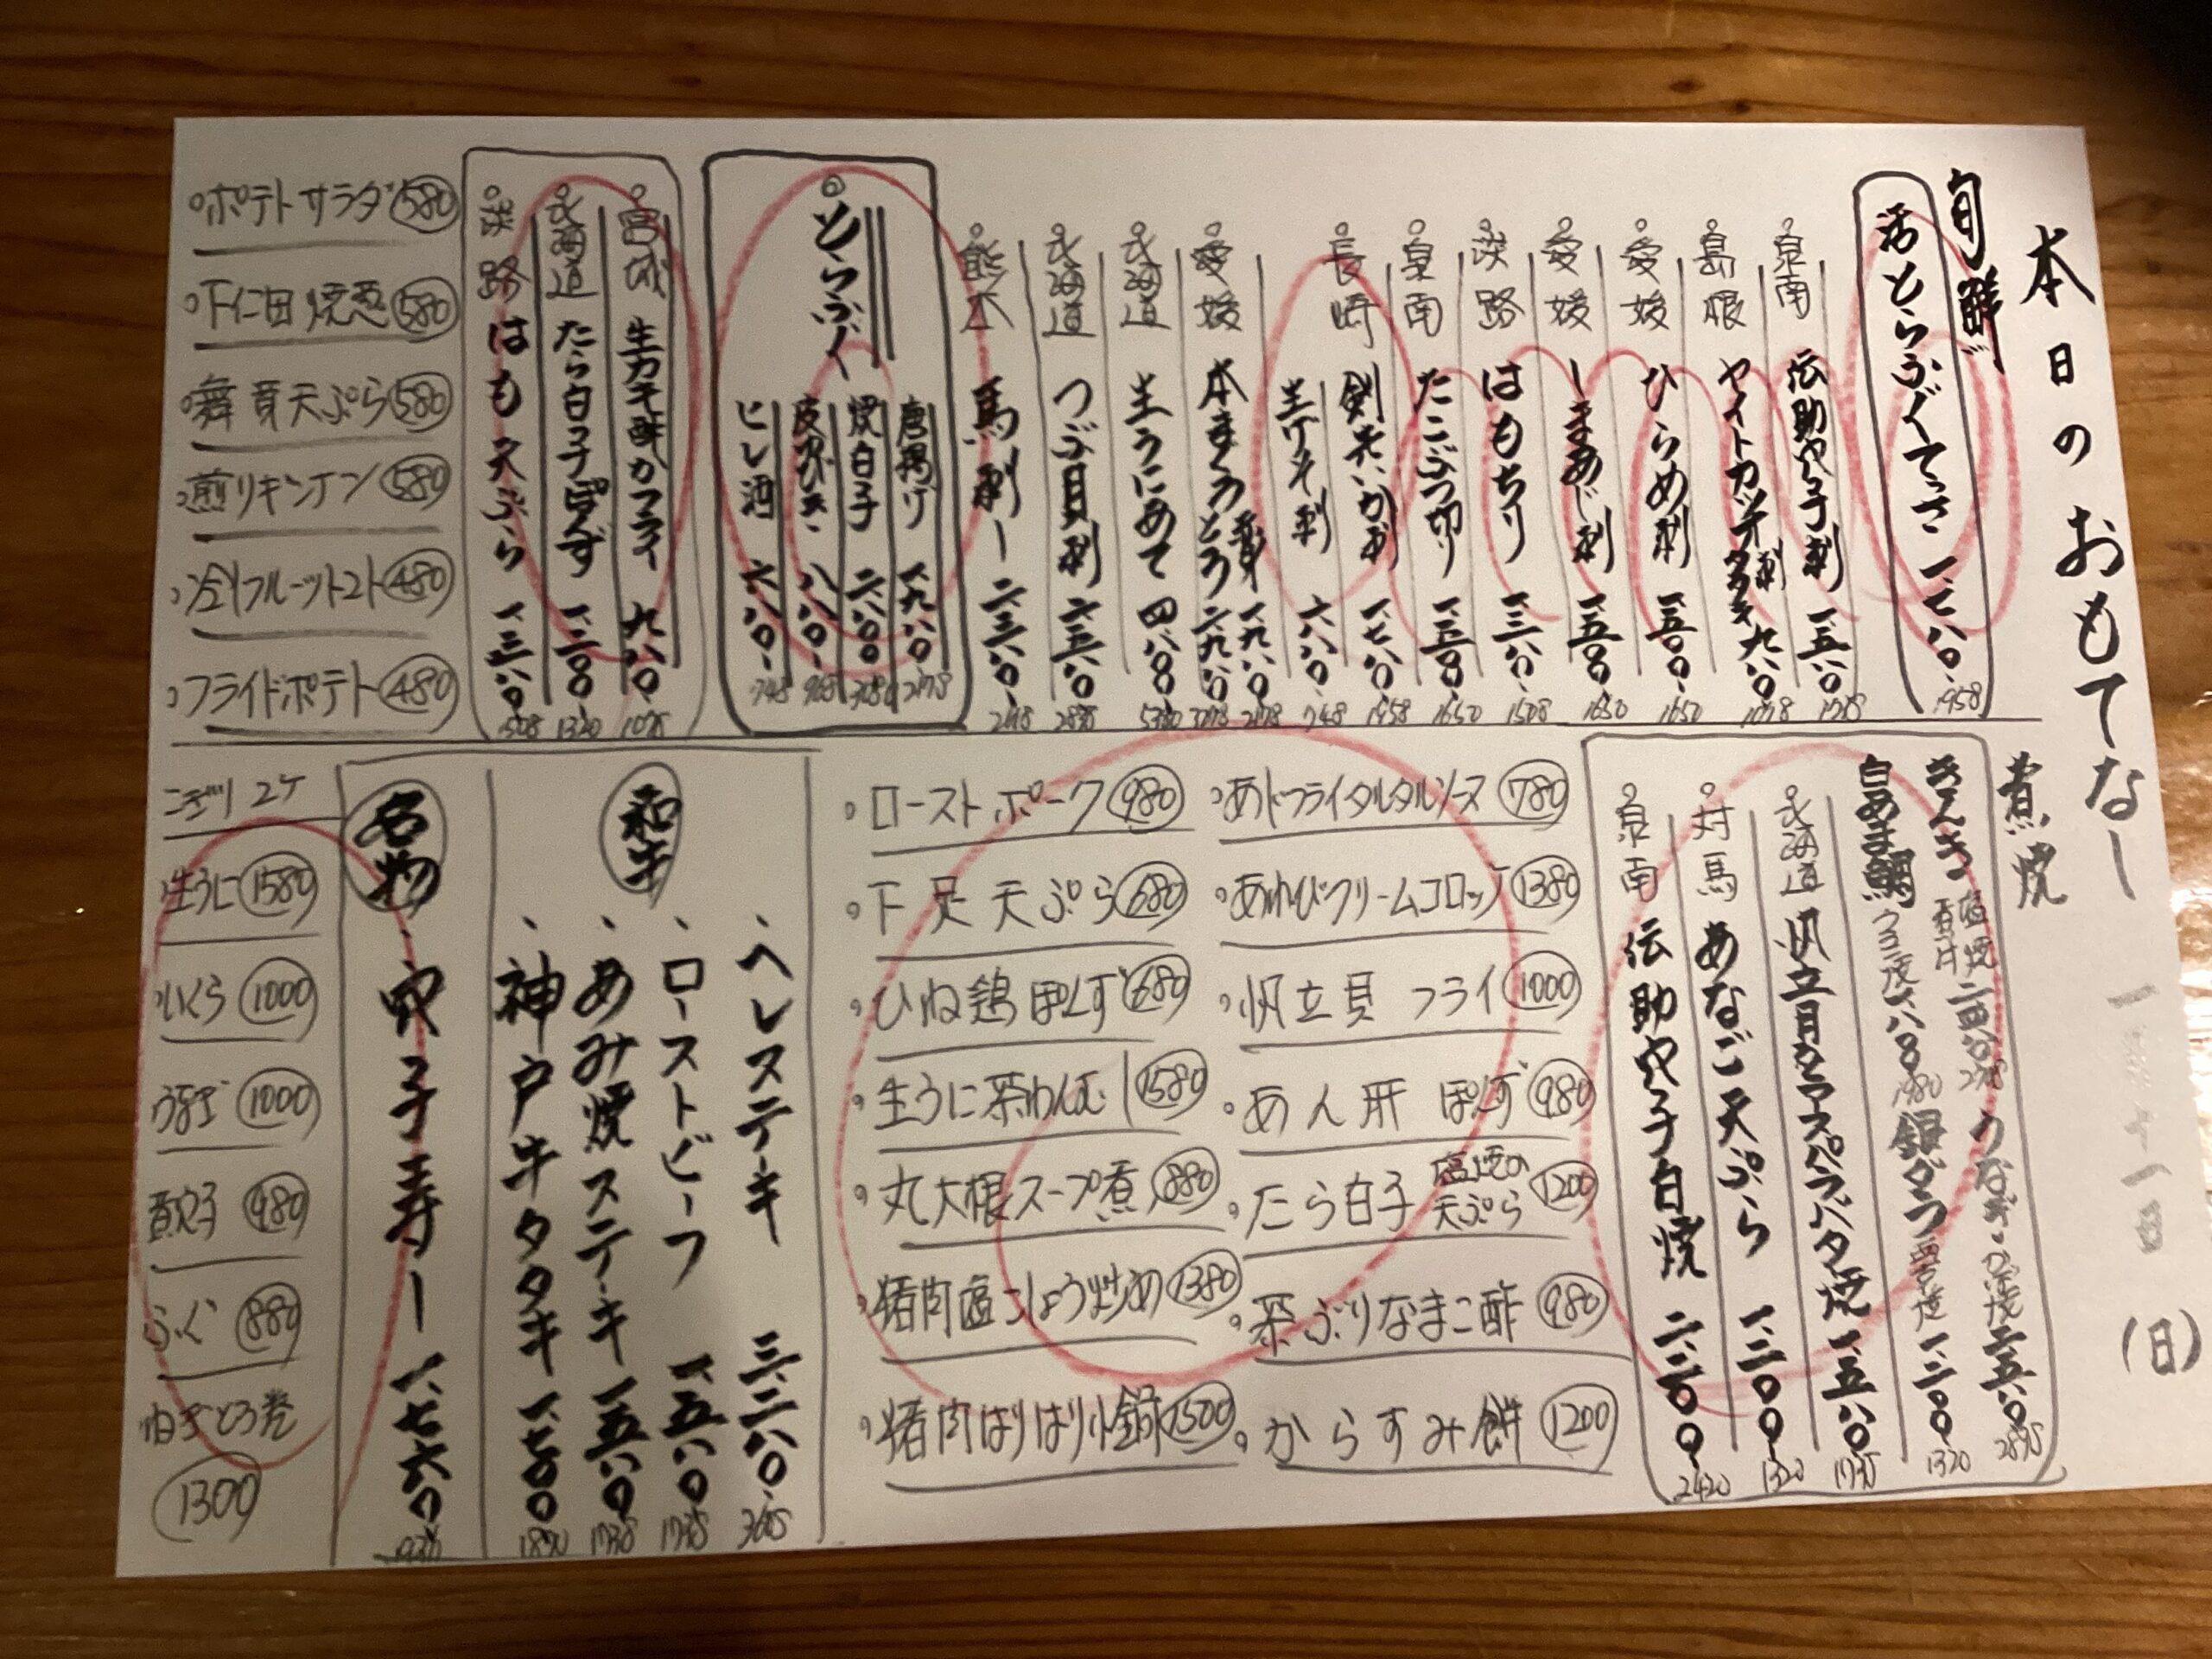 本日のおもてなし 一月十一日(日)
旬鮮
活とらふぐてっさ 一、七八〇、 1958
泉南 伝助穴子刺 一、五八〇 1738
島根 ヤイトカツオ 刺 タタキ 九八〇 1078
愛媛 ひらめ刺 一、五〇〇、 1650
愛媛 しまあじ刺 一、五〇〇、 1650
淡路 はもちり 一、三八〇、 1508
泉南 たこぶつ切り 一、五〇〇、 1650
長崎 剣先いか刺 一、七八〇、 1958
生げそ刺 六八〇、 748
愛媛 本まぐろ とろ 二、九八〇
一、九八〇 2178
北海道 生うにあて 四、八八〇
北海道 つぶ貝刺
熊本 馬刺し 二、三八〇
とらふぐ
唐揚げ 一、九八〇 2178
焼白子 二、八〇〇 3080
皮湯びき 八八〇、 968
ヒレ酒 六八〇、 748
宮城 生カキ酢かフライ 九八〇、 1078
北海道 たら白子ぽんず 一、二〇〇、 1320
淡路 はも天ぷら 一、三八〇、 1508
ポテトサラダ 580
下仁田焼葱 580
舞茸天ぷら 580
煎りギンナン 580
冷やしフルーツトマト 480
フライドポテト 480
煮焼
きんき 塩焼 煮付
うなぎ かば焼 二、五八〇
白あま鯛 一、八〇〇 1980
銀ダラ 西京焼 一、二〇〇、 1320
北海道 帆立貝アスパラバター焼 一、五八〇
対馬 あなご天ぷら 一、二〇〇、 1320
泉南 伝助穴子白焼 二、二〇〇、 2420
あじフライタルタルソース 780
あわびクリームコロッケ 1380
帆立貝フライ 1000
あん肝 ぽんず 980
たら白子 塩焼か 天ぷら 1200
茶ぶりなまこ酢 980
からすみ餅 1200
ローストポーク 980
下足天ぷら 680
ひね鶏ぽんず 680
生うに茶わんむし 1580
丸大根スープ煮 880
猪肉塩こしょう炒め 1380
猪肉はりはり小鍋 1500
和牛
、ヘレステーキ 三、二八〇、
、ローストビーフ 一、五八〇 1738
、あみ焼ステーキ 一、五八〇 1738
、神戸牛タタキ 一、七〇〇 1870
名物
、穴子寿し 一、七六〇 1936
にぎり 2ケ
生うに 1580
いくら 1000
うなぎ 1000
煮穴子 980
ふぐ 880
ねぎとろ巻
1300